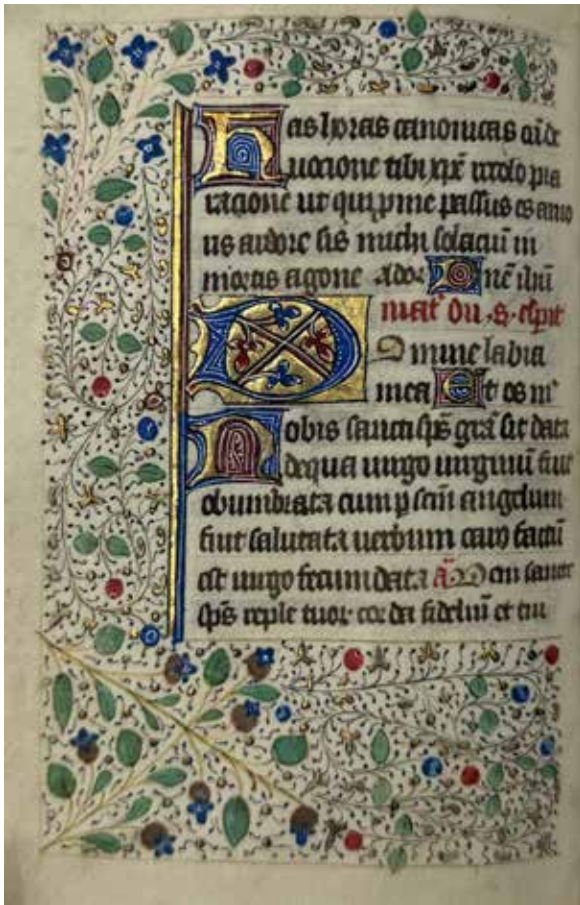 has horas canonicas cū de
uocione tibi xpe recolo pia
racione ut qui p me passus es amo
ris ardore sis michi solaciū in
mortis agone Ador
mat' Du .s. esprit
Domine labia
mea Et os m
Nobis sancti sps grā sit data
de qua uirgo uirginū fuit
obumbrata cum p scm̄ angelum
fuit salutata uerbum caro factū
est uirgo fecundata ā Veni sancte
sps reple tuor corda fideliū et tui